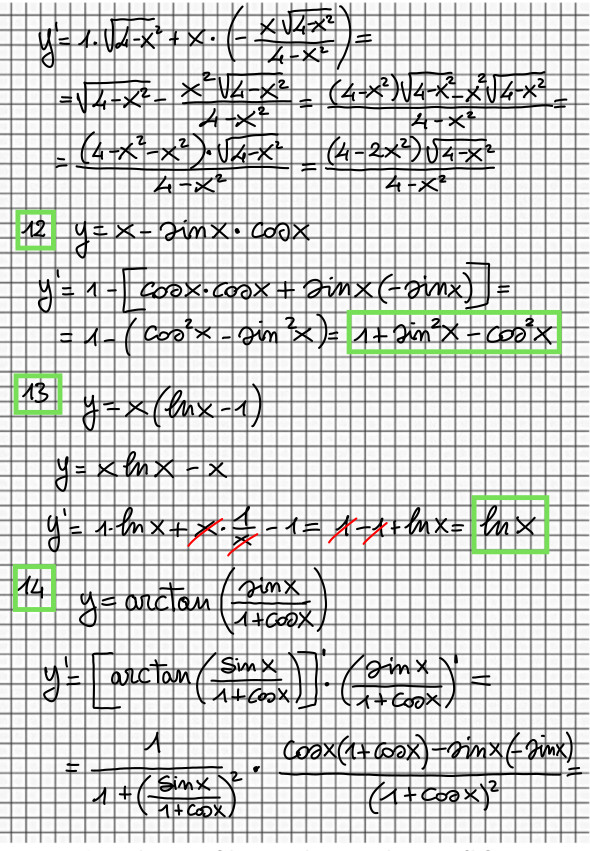 y' = 1·√(4-x²) + x·(- x√(4-x²)/(4-x²)) =
= √(4-x²) - x²√(4-x²)/(4-x²) = ((4-x²)√(4-x²) - x²√(4-x²))/(4-x²) =
= (4-x²-x²)·√(4-x²)/(4-x²) = (4-2x²)√(4-x²)/(4-x²)
12 y = x - sinx · cosx
y' = 1 - [cosx·cosx + sinx(-sinx)] =
= 1 - (cos²x - sin²x) = 1 + sin²x - cos²x
13 y = x(lnx - 1)
y = x lnx - x
y' = 1·lnx + x · 1/x - 1 = 1 - 1 + lnx = lnx
14 y = arctan(sinx/(1+cosx))
y' = [arctan(sinx/(1+cosx))]' · (sinx/(1+cosx))' =
= 1/(1+(sinx/(1+cosx))²) · (cosx(1+cosx) - sinx(-sinx))/(1+cosx)² =